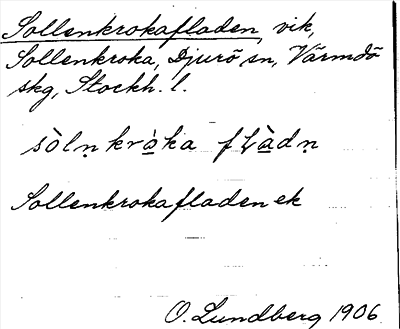 Sollenkrokafladen, vik,
Sollenkroka, Djurö sn, Värmdö
skg, Stockh. l.
sòlṇkrò̲ka fl̥à̲dṇ
Sollenkrokafladen ek
O. Lundberg 1906